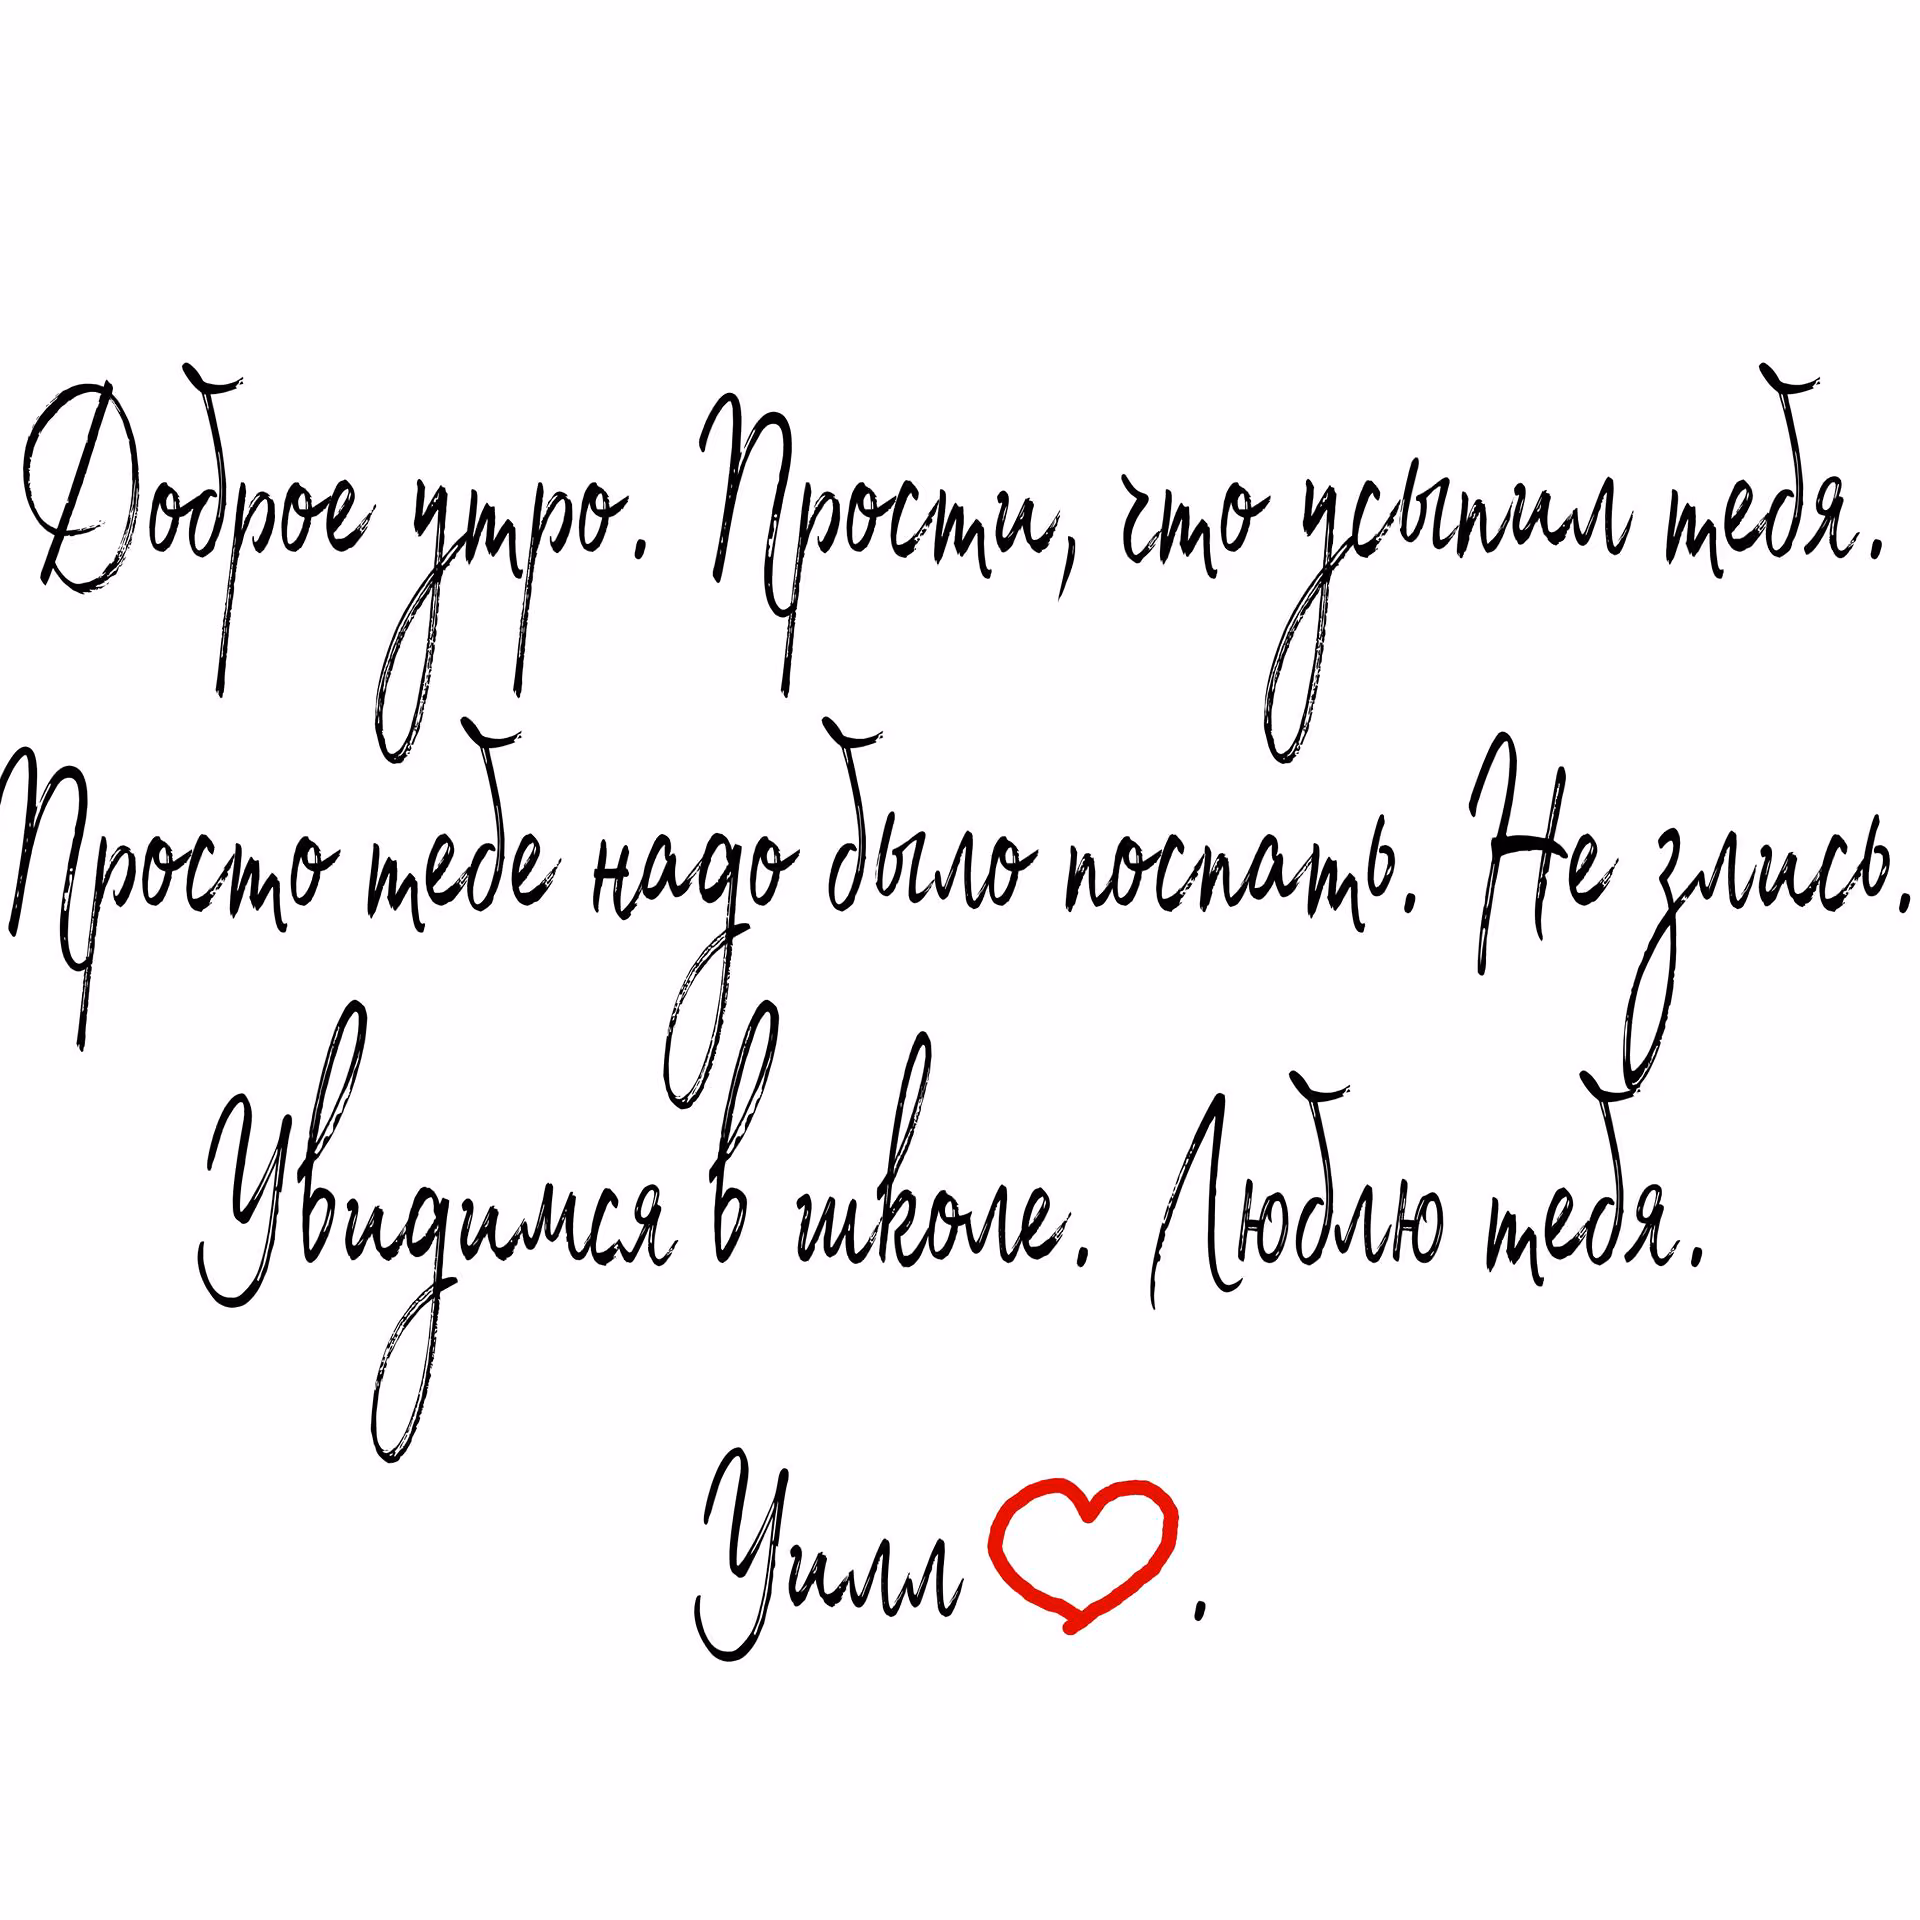 Доброе утро. Прости, что усыпил тебя.
Просто тебе надо было поспать. Не злись.
Увидимся в школе. Люблю тебя.
Уилл .